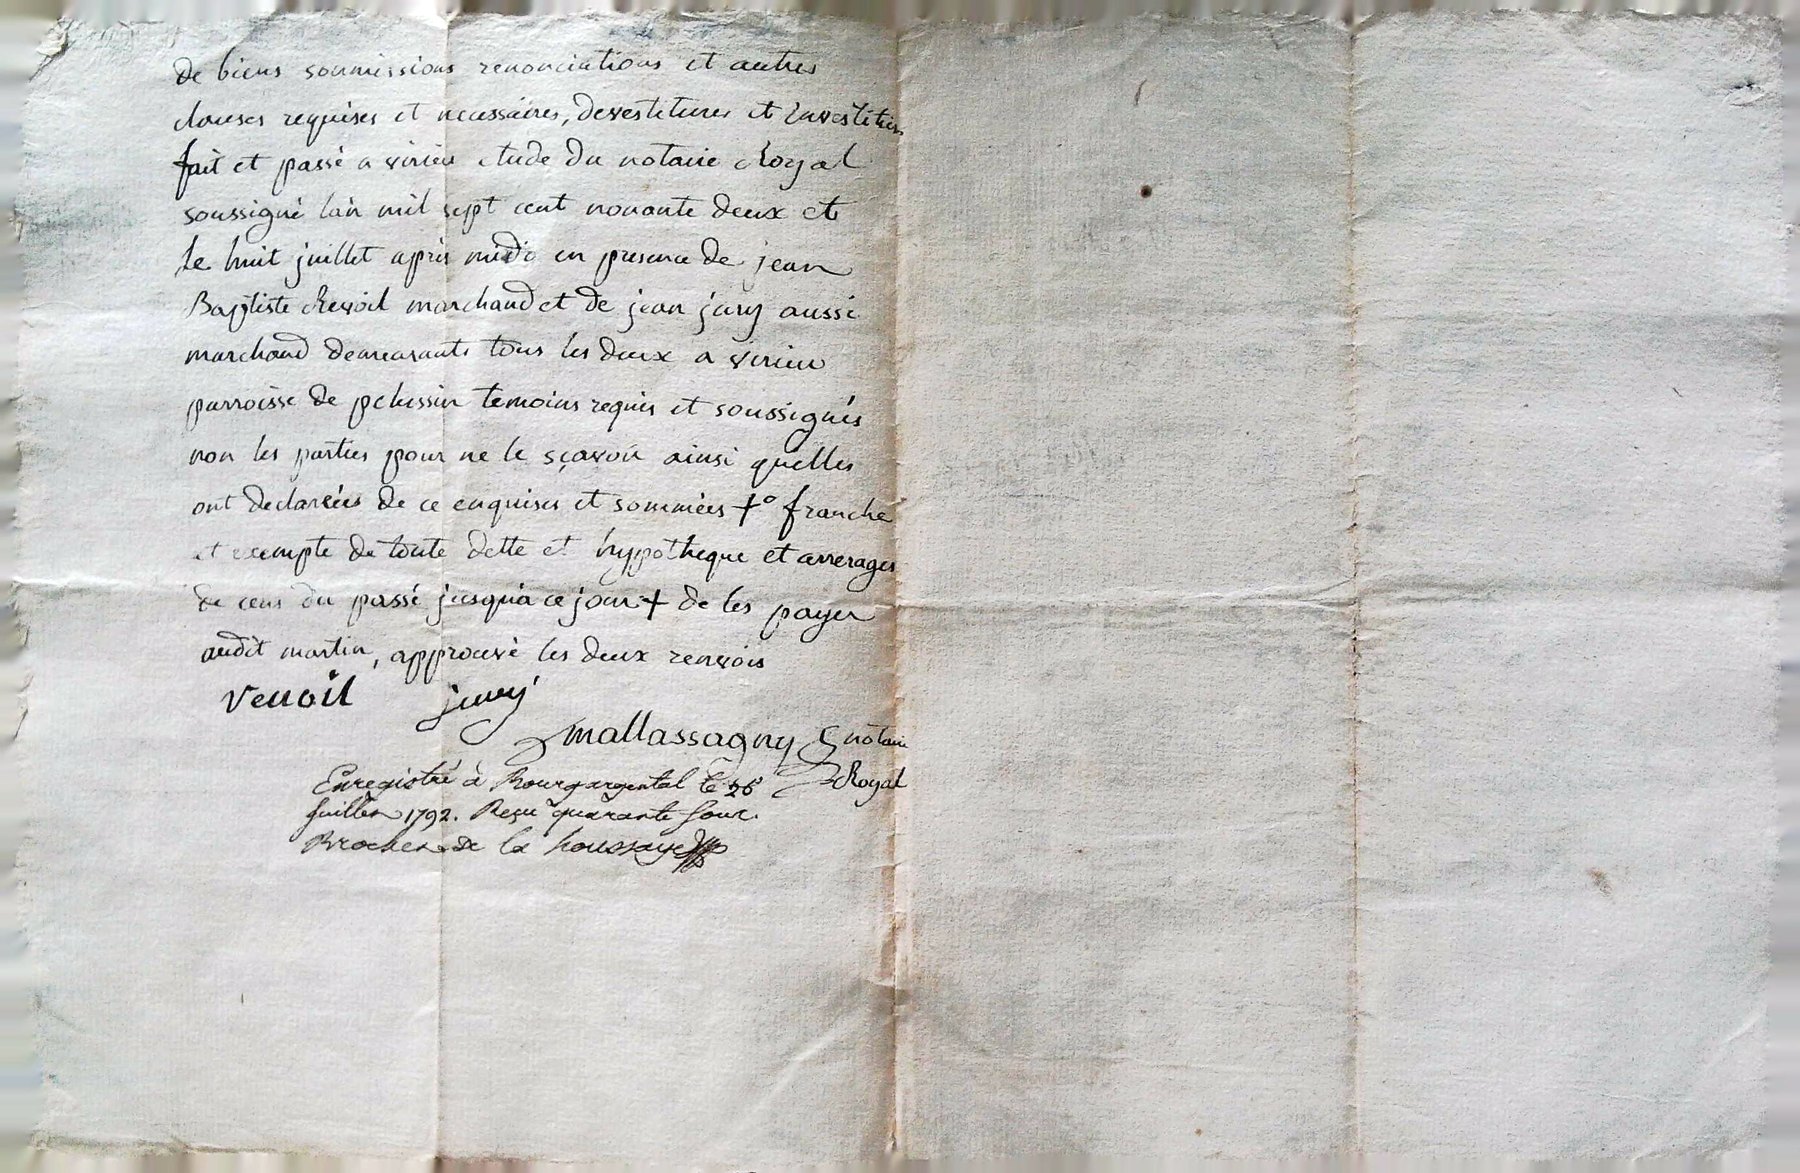 de biens soumissions renonciations et autres
clauses requises et necessaires, devestitures et Investitures
fait et passé a virieu etude du notaire Royal
soussigné lan mil sept cent nonante deux et
le huit juillet apris midi en presence de jean
Baptiste Revoil marchand et de jean jury aussi
marchand demeurants tous les deux a virieu
parroisse de pelussin temoins requis et soussignés
non les parties pour ne le sçavoir ainsi quelles
ont declarées de ce enquises et sommées +° franche
et exempte de toute dette et hypotheque et arrerages
de cens du passé jusqua ce jour + de les payer
audit martin, approuvé les deux renvois
Revoil jury
mallassagny notaire
Royal
Enregistré à Bourgargental le 26
juillet 1792. Reçu quarante sous.
de la houssaye